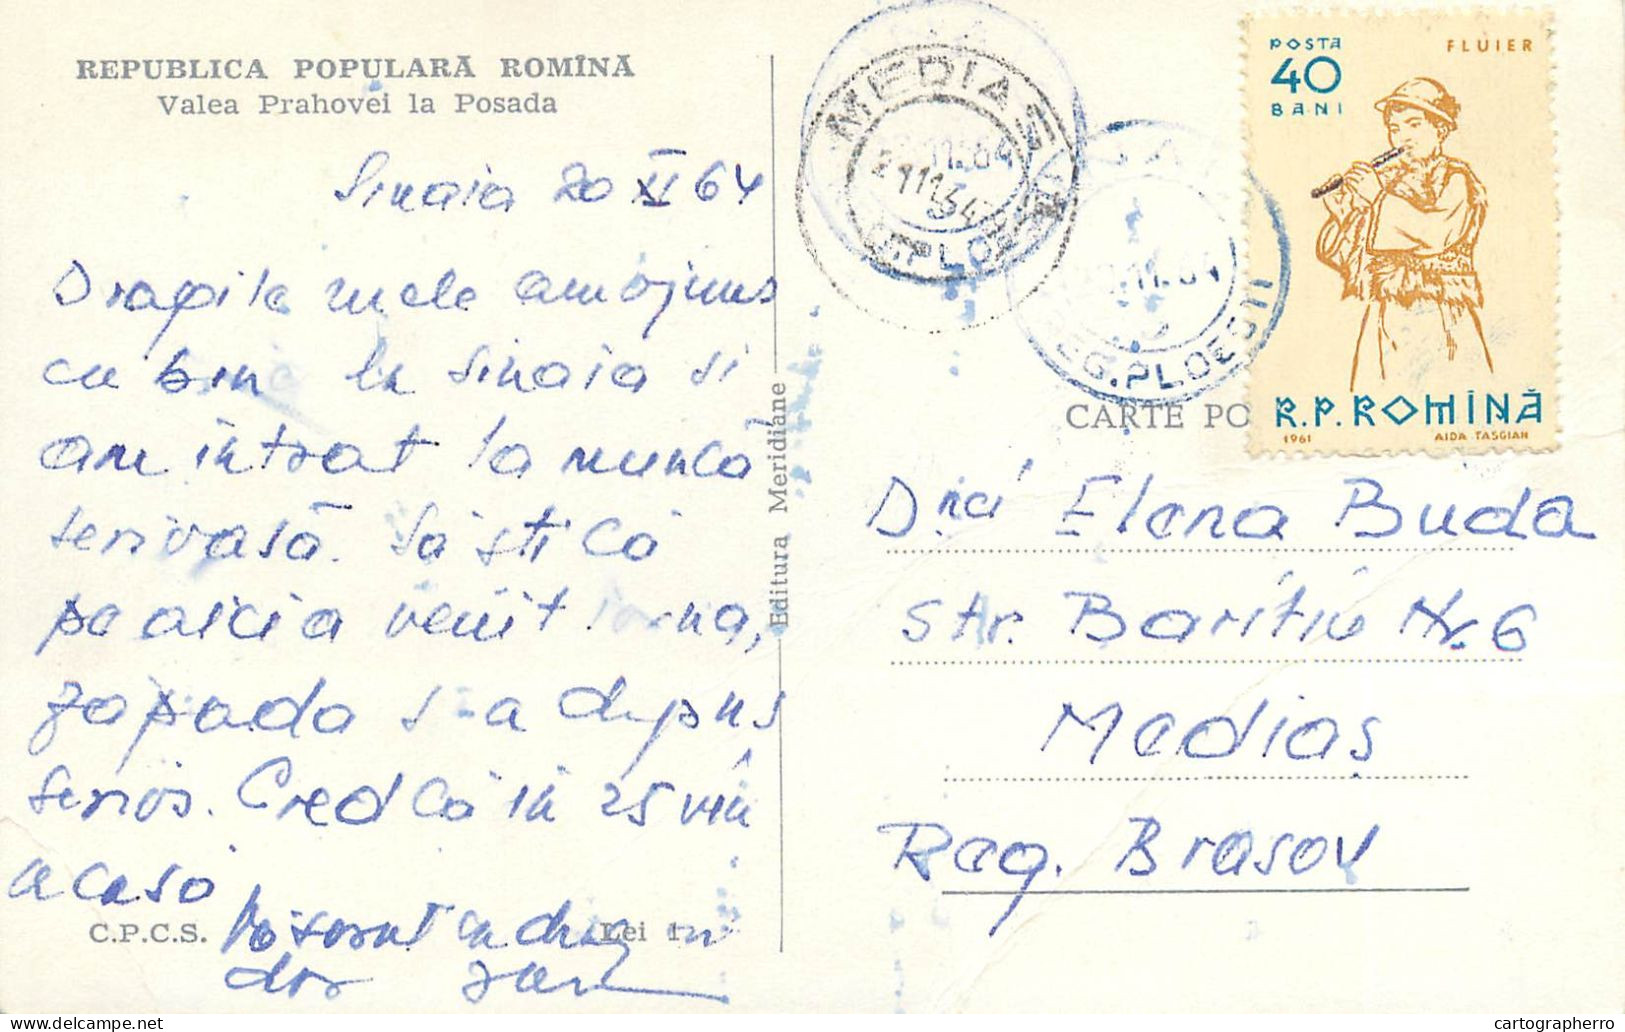 REPUBLICA POPULARĂ ROMÎNĂ
Valea Prahovei la Posada
Sinaia 20 XI 64
Dragile mele am ajuns
cu bine la Sinaia si
am intrat la munca
serioasă. Să sti că
pe aici a venit iarna,
zapada s-a depus
serios. Cred că in 25 vin
acasă
Vă sarut cu drag
dor
C.P.C.S.
Lei 1
Editura Meridiane
MEDIAS
21 11 64
REG. PLOESTI
POSTA
40
BANI
FLUIER
R.P.ROMÎNĂ
1961
AIDA TASGIAN
CARTE PO
Dnei Elena Buda
Str. Baritiu Nr. 6
Medias
Reg. Brasov
cartographerro